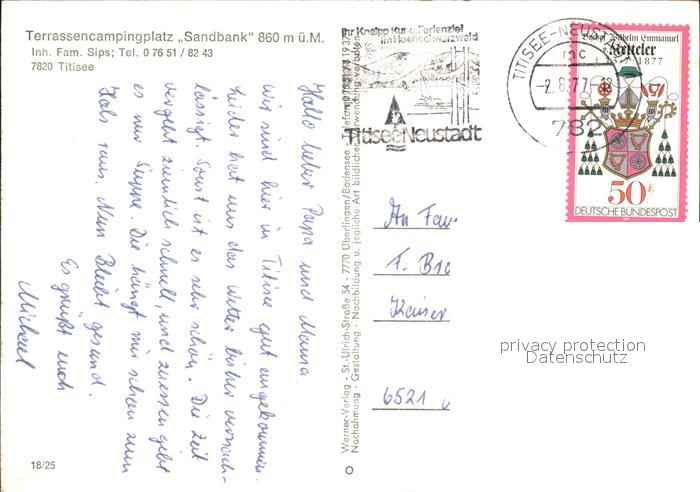 Terrassencampingplatz „Sandbank“ 860 m ü.M.
Inh. Fam. Sips; Tel. 0 76 51 / 82 43
7820 Titisee
Hallo lieber Papa und Mama.
wir sind hier in Titisee gut angekommen.
Leider hat uns das Wetter bisher vernach-
lässigt. Sonst ist es sehr schön. Die Zeit
vergeht ziemlich schnell, und zuessen gibt
es nur Suppe. Die hängt mir schon zum
Hals raus. Nun Bleibt gesund.
Es grüßt euch
Michael
18/25
Werner-Verlag - St.-Ulrich-Straße 54 - 7770 Überlingen/Bodensee -
Nachahmung - Gestaltung - Nachbildung u. jegliche Art bildlicher verwendung verboten
Ihr Kneipp Kur- u. Ferienziel
im Hochschwarzwald
Titisee Neustadt
TITISEE-NEUSTADT
mc
-2.8.77-18
782
Wilhelm Emmanuel
Ketteler
1877
50
DEUTSCHE BUNDESPOST
An Fam
F. B
Kaiser
6521
privacy protection
Datenschutz